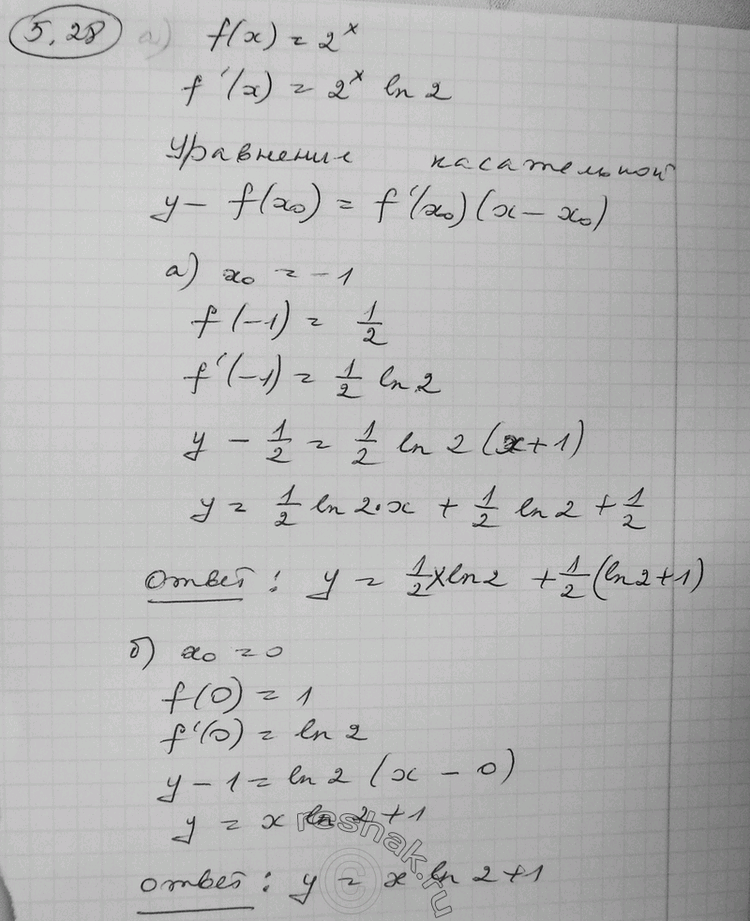 5.28 а) f(x) = 2^x
f'(x) = 2^x ln 2
Уравнение касательной
y - f(x₀) = f'(x₀)(x - x₀)
а) x₀ = -1
f(-1) = 1/2
f'(-1) = 1/2 ln 2
y - 1/2 = 1/2 ln 2 (x+1)
y = 1/2 ln 2·x + 1/2 ln 2 + 1/2
Ответ: y = 1/2 x ln 2 + 1/2 (ln 2 + 1)
б) x₀ = 0
f(0) = 1
f'(0) = ln 2
y - 1 = ln 2 (x - 0)
y = x ln 2 + 1
ответ: y = x ln 2 + 1
reshak.ru